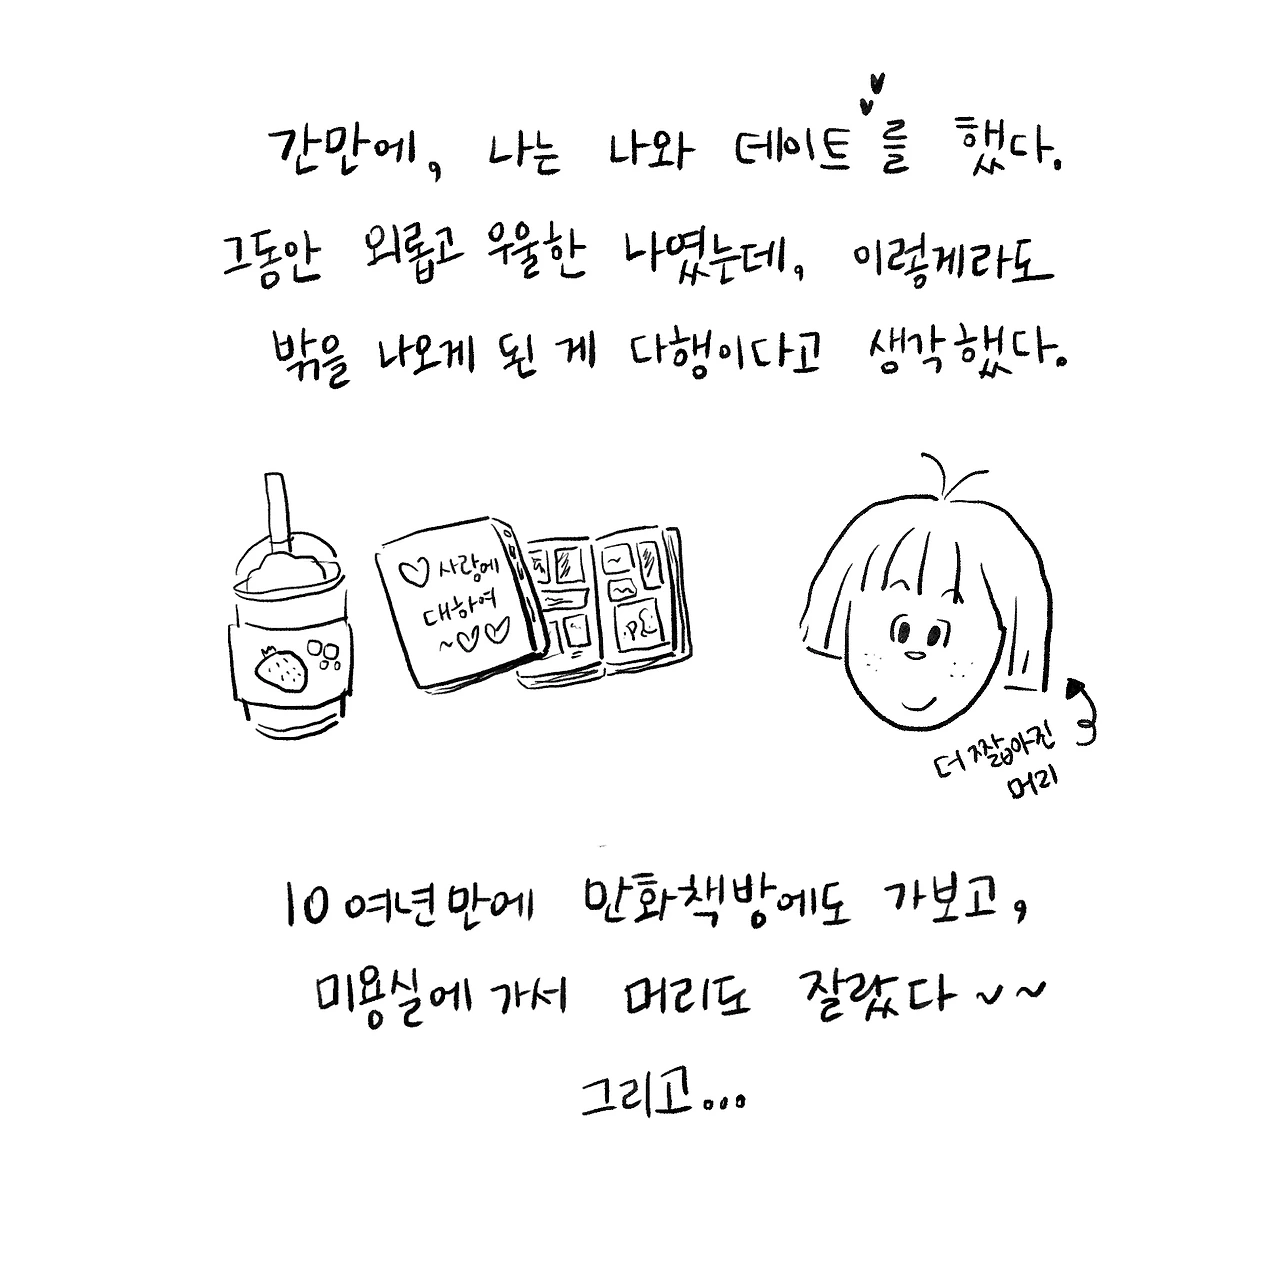 간만에, 나는 나와 데이트를 했다.
그동안 외롭고 우울한 나였는데, 이렇게라도
밖을 나오게 된 게 다행이다고 생각했다.
사랑에
대하여
~
더 짧아진
머리
10여년만에 만화책방에도 가보고,
미용실에 가서 머리도 잘랐다~~
그리고...